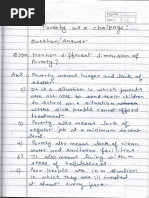 Poverty as a challenge:
Question/Answer
Q.1 Mention different dimension of
Poverty?
Ans Poverty means hunger and lack of
shelter
It is a situation in which parents
are not able to send their children
to school or a situation where
sick people cannot afford
treatment.
Poverty also means lack of
regular job at a minimum decent
level.
Poverty also means lack of clean
water and sanitation facilities
It also means living with a
sense of helplessness.
Poor people are in a situation
in which they are ill-treated
at almost every place.